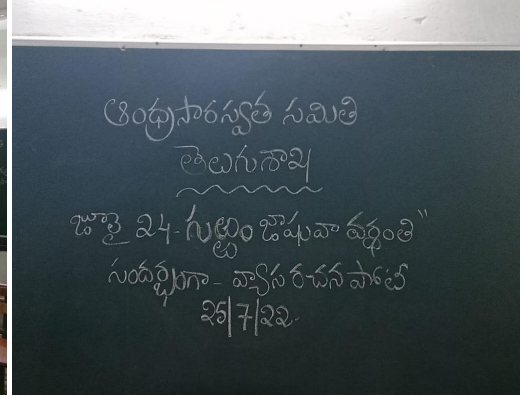 ఆంధ్రసారస్వత సమితి
తెలుగుశాఖ
జూలై 24-గుఱ్ఱం జాషువా వర్ధంతి"
సందర్భంగా - వ్యాస రచన పోటీ
25/7/22.